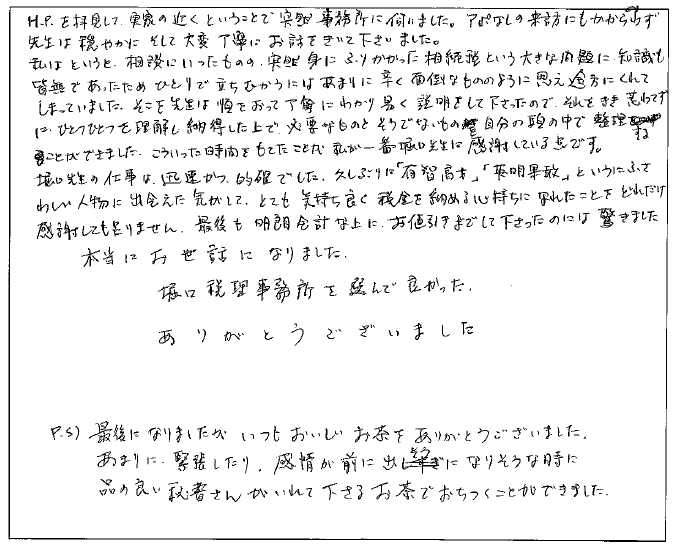 H.P.を拝見して、実家の近くということで突然事務所に伺いました。アポなしの来訪にもかかわらず
先生は穏やかに そして大変丁寧にお話をきいて下さいました。
私はというと、相談にいったものの、突然身にふりかかった相続税という大きな問題に、知識も
皆無であったため ひとりで立ちむかうには あまりに辛く面倒なもののように思え途方にくれて
しまっていました。そこを先生は順をおって丁寧にわかり易く説明をして下さったので、それをきき慌わてず
に、ひとつひとつを理解し納得した上で、必要なものとそうでないもの 自分の頭の中で整理する
ことができました。こういった時間をもてたことが私が一番堀口先生に感謝している点です。
堀口先生の仕事は、迅速かつ、的確でした。久しぶりに「有智高才」「英明果敢」というにふさ
わしい人物に出会えた気がして、とても気持ち良く税金を納める心持ちになれたことをどれだけ
感謝しても足りません。最後も明朗会計な上に、お値引きまでして下さったのには驚きました
本当にお世話になりました。
堀口税理事務所を選んで良かった。
ありがとうございました
P.S) 最後になりましたが いつもおいしいお茶をありがとうございました。
あまりに、緊張したり、感情が前に出そうになりそうな時に
品の良い秘書さんがいれて下さるお茶でおちつくことができました。